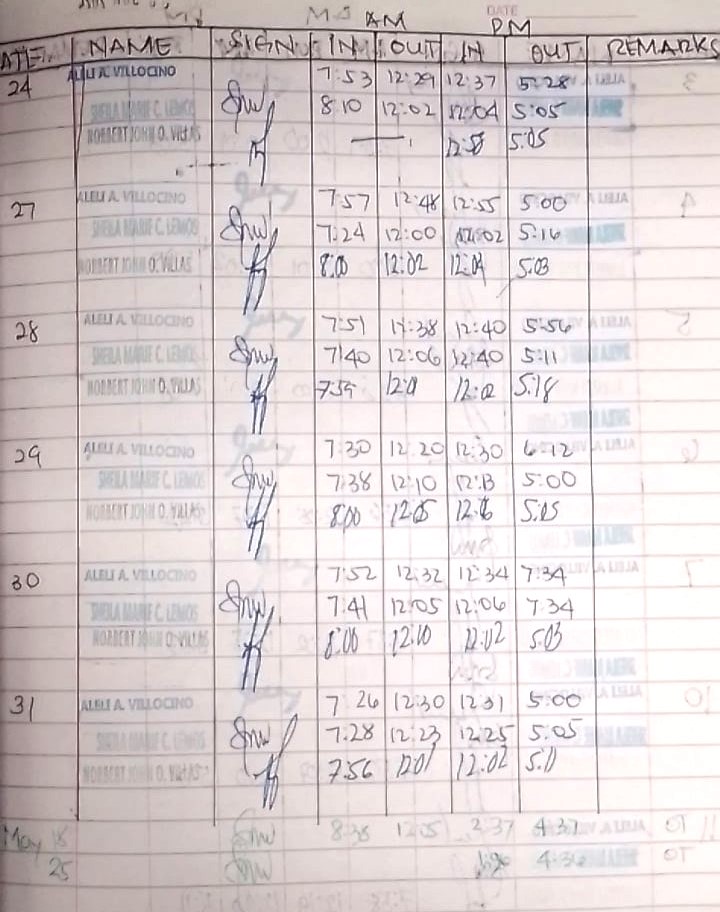 DATE
AM PM
DATE NAME SIGN IN OUT IN OUT REMARKS
24 ALELI A. VILLOCINO 7:53 12:29 12:37 5:28
SHEILA MARIE C. LEMOS 8:10 12:02 12:04 5:05
NORBERT JOHN O. VILLAS — 5:05
27 ALELI A. VILLOCINO 7:57 12:48 12:55 5:00
SHEILA MARIE C. LEMOS 7:24 12:00 12:02 5:16
NORBERT JOHN O. VILLAS 8:00 12:02 12:04 5:03
28 ALELI A. VILLOCINO 7:51 12:40 5:56
SHEILA MARIE C. LEMOS 7:40 12:06 12:40 5:11
NORBERT JOHN O. VILLAS 7:59 12:01 12:02 5:18
29 ALELI A. VILLOCINO 7:30 12:20 12:30 6:12
SHEILA MARIE C. LEMOS 7:38 12:10 12:13 5:00
NORBERT JOHN O. VILLAS 8:00 12:05 12:06 5:05
30 ALELI A. VILLOCINO 7:52 12:32 12:34 7:34
SHEILA MARIE C. LEMOS 7:41 12:05 12:06 7:34
NORBERT JOHN O. VILLAS 8:00 12:10 12:02 5:03
31 ALELI A. VILLOCINO 7:26 12:30 12:31 5:00
SHEILA MARIE C. LEMOS 7:28 12:23 12:25 5:05
NORBERT JOHN O. VILLAS 7:56 1201 12:02 5:11
May 18 8:38 12:05 2:37 4:37
25 4:36